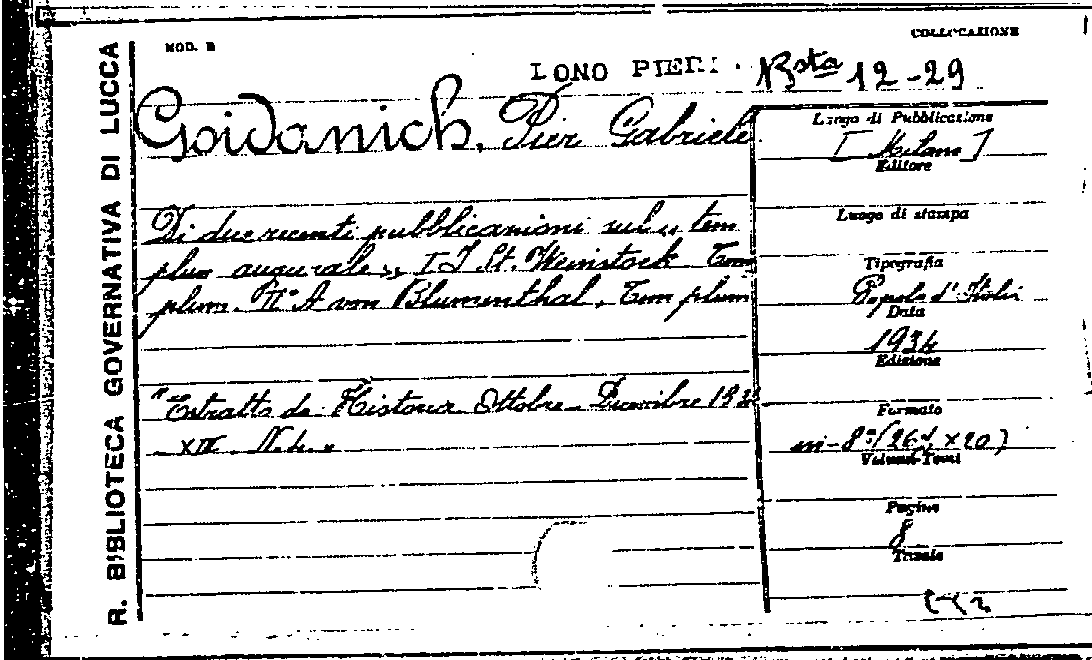 R. BIBLIOTECA GOVERNATIVA DI LUCCA
MOD. B
COLLOCAZIONE
DONO PIERI. Bsta 12-29
Goidanich, Pier Gabriele
Luogo di Pubblicazione
[Milano]
Editore
Di due recenti pubblicazioni sul „ tem
Luogo di stampa
plum augurale „ I° St. Weinstock Tem
Tipografia
plum. II° A von Blumenthal, Templum
Popolo d'Italia
Data
1934
Edizione
"Estratto da Historia Ottobre-Dicembre
Formato
N. 4. "
in-8° (26 × 20)
Volumi-Tomi
Pagine
8
Tavole